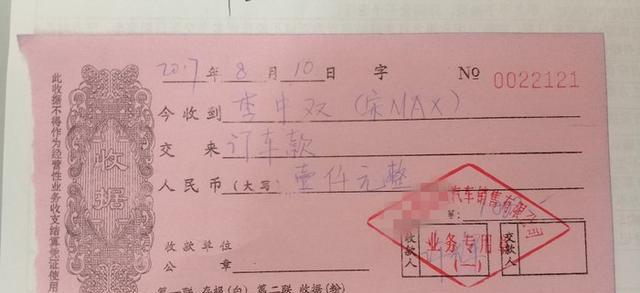 2017年8月10日 字 № 0022121
今收到 李中双(宋MAX)
交来 订车款
人民币(大写) 壹仟元整
汽车销售有限公司
业务专用章
(一)
收款单位
公章
收款人
交款人
第一联 存根(白) 第二联 收据(粉)
收据
此收据不得作为经营性业务收支结算凭证使用